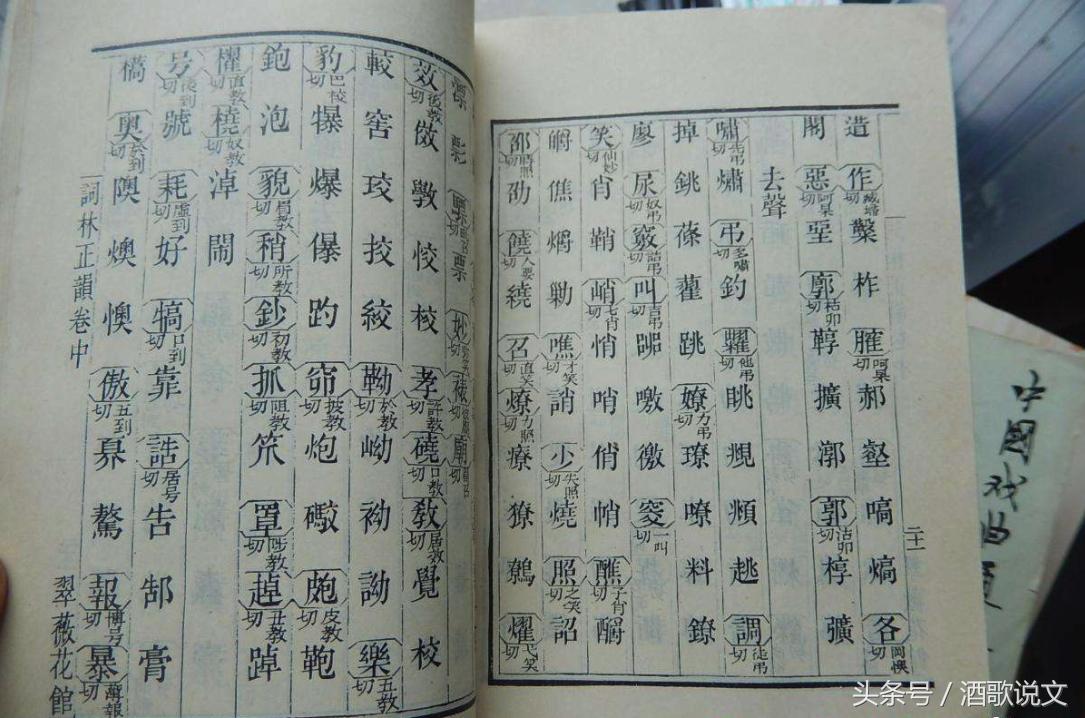 造 作臧祚切 鑿 柞 臛呵杲切 郝 壑 嗃 熇 各岡懊切
閣 惡阿杲切 堊 廓枯卯切 鞟 擴 漷 郭沽卯切 槨 彍
去聲
嘯先弔切 熽 弔多嘯切 釣 糶他弔切 眺 覜 頫 趒 調徒弔切
掉 銚 蓧 藋 跳 嫽力弔切 璙 嘹 料 鐐
廖 尿奴弔切 竅詰弔切 叫吉弔切 噭 徼 窔一叫切
笑仙妙切 肖 鞘 峭七肖切 悄 哨 俏 帩 醮子肖切 釂
皭 僬 爝 勦 噍才笑切 誚 少失照切 燒 照之笑切 詔
邵時照切 劭 饒人要切 繞 召直笑切 燎力照切 療 獠 鷯 燿弋笑切
二十一
漂 票 妙 廟
效後教切 傚 斆 恔 校 孝許教切 磽口教切 教居效切 覺 校
較 窖 珓 挍 絞 靿於教切 岰 袎 詏 樂五教切
豹巴校切 犦 爆 儤 趵 窌披教切 炮 礮 皰皮教切 鞄
鉋 泡 貌眉教切 稍所教切 鈔初教切 抓阻教切 笊 罩陟教切 趠丑教切 踔
櫂直教切 橈奴教切 淖 閙
号後到切 號 耗虛到切 好 犒口到切 靠 誥居号切 告 郜 膏
檺 奧於到切 隩 燠 懊 傲五到切 奡 驁 報博号切 暴薄報切
詞林正韻卷中 翠薇花館
中國戏曲
头条号 / 酒歌说文